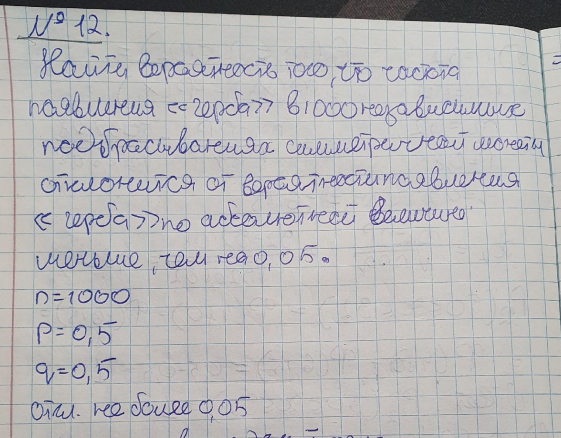 № 12.
Найти вероятность того, что частота
появления «герба» в 1000 независимых
подбрасываниях симметричной монеты
отклонится от вероятности появления
«герба» по абсолютной величине
меньше, чем на 0,05.
n=1000
p=0,5
q=0,5
откл. не более 0,05